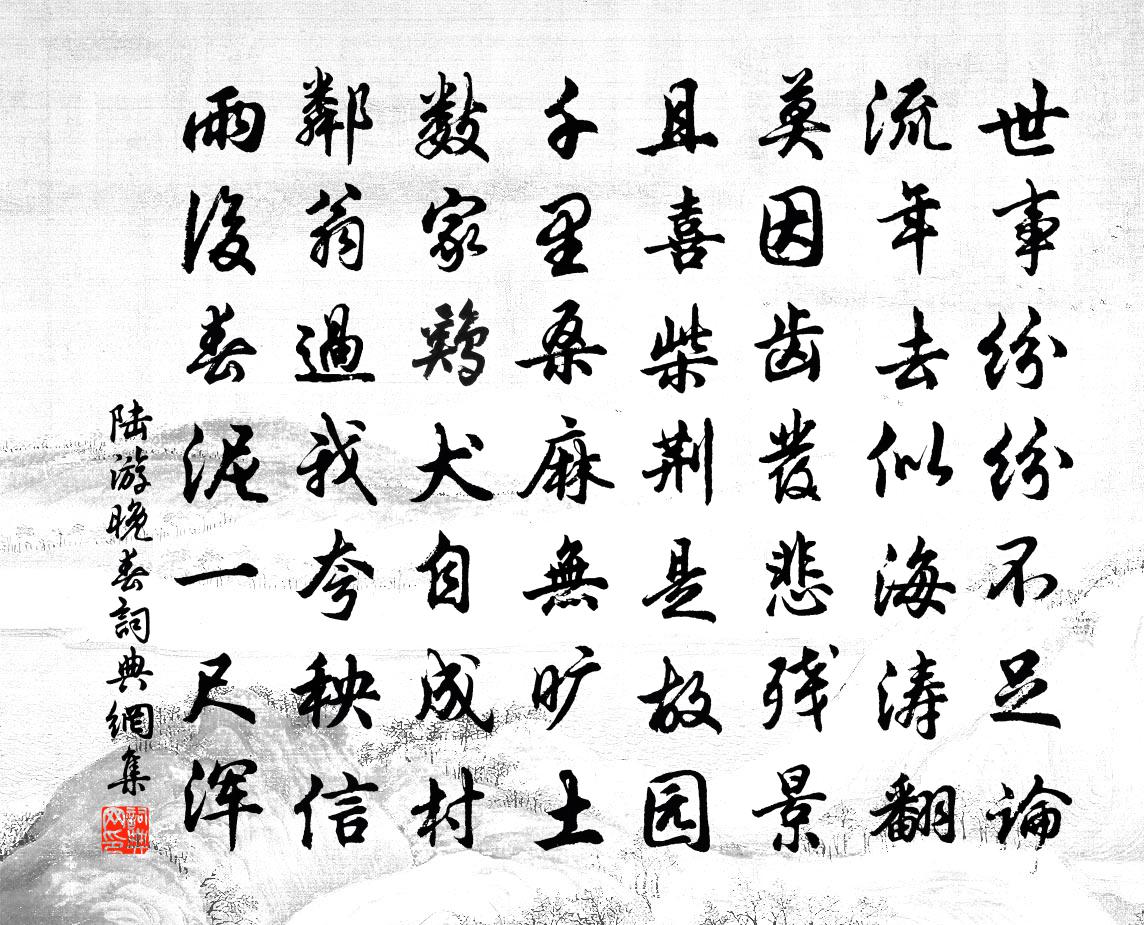 世事紛紛不足論
流年去似海涛翻
莫因齿發悲残景
且喜柴荆是故园
千里桑麻無旷土
数家鷄犬自成村
鄰翁過我夸秧信
雨後春泥一尺浑
陆游晚春詞典網集